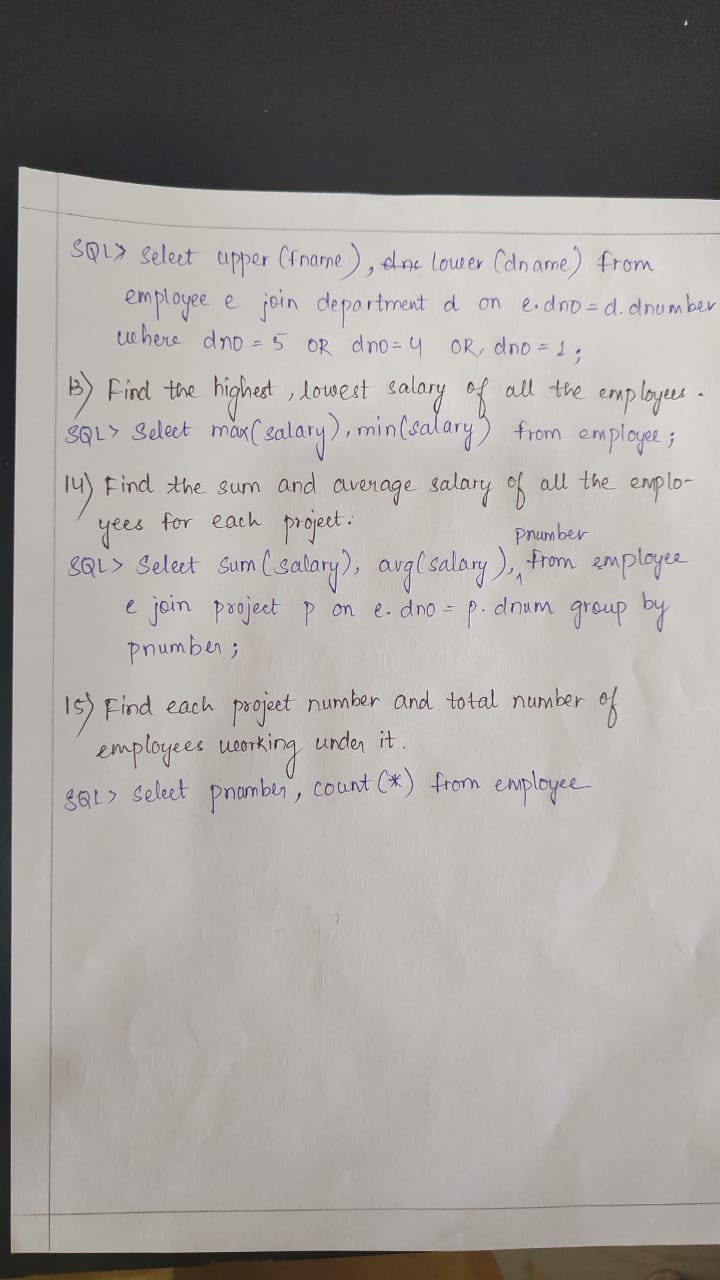 SQL> Select upper (fname), dne lower (dname) from
employee e join department d on e.dno = d.dnumber
where dno = 5 OR dno = 4 OR, dno = 1;
13) Find the highest, lowest salary of all the employees.
SQL> Select max(salary), min(salary) from employee;
14) Find the sum and average salary of all the emplo-
yees for each project.
pnumber
SQL> Select sum (salary), avg(salary), from employee
e join project p on e.dno = p.dnum group by
pnumber;
15) Find each project number and total number of
employees working under it.
SQL> Select pnumber, count (*) from employee